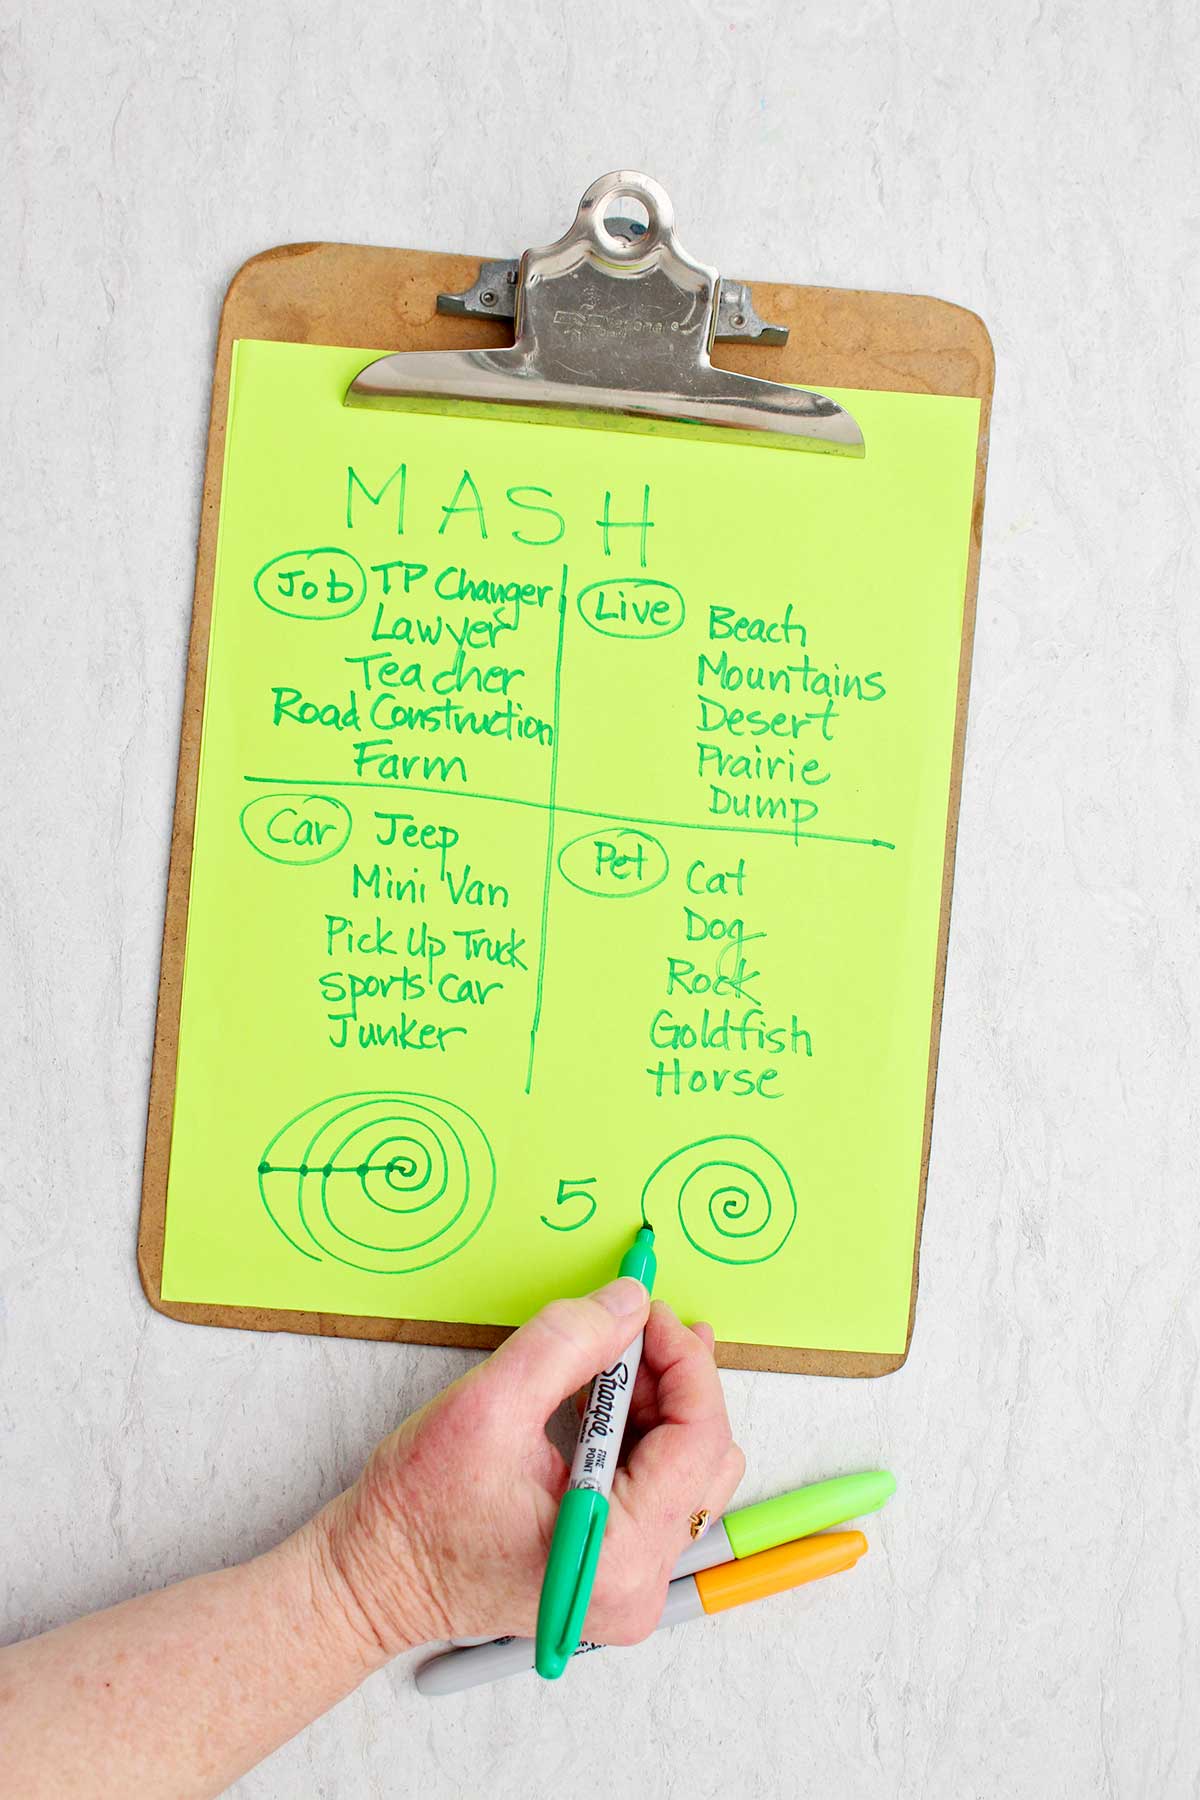 MASH
Job TP Changer
Lawyer
Teacher
Road Construction
Farm
Live Beach
Mountains
Desert
Prairie
Dump
Car Jeep
Mini Van
Pick Up Truck
Sports Car
Junker
Pet Cat
Dog
Rock
Goldfish
Horse
5
Sharpie
FINE
POINT